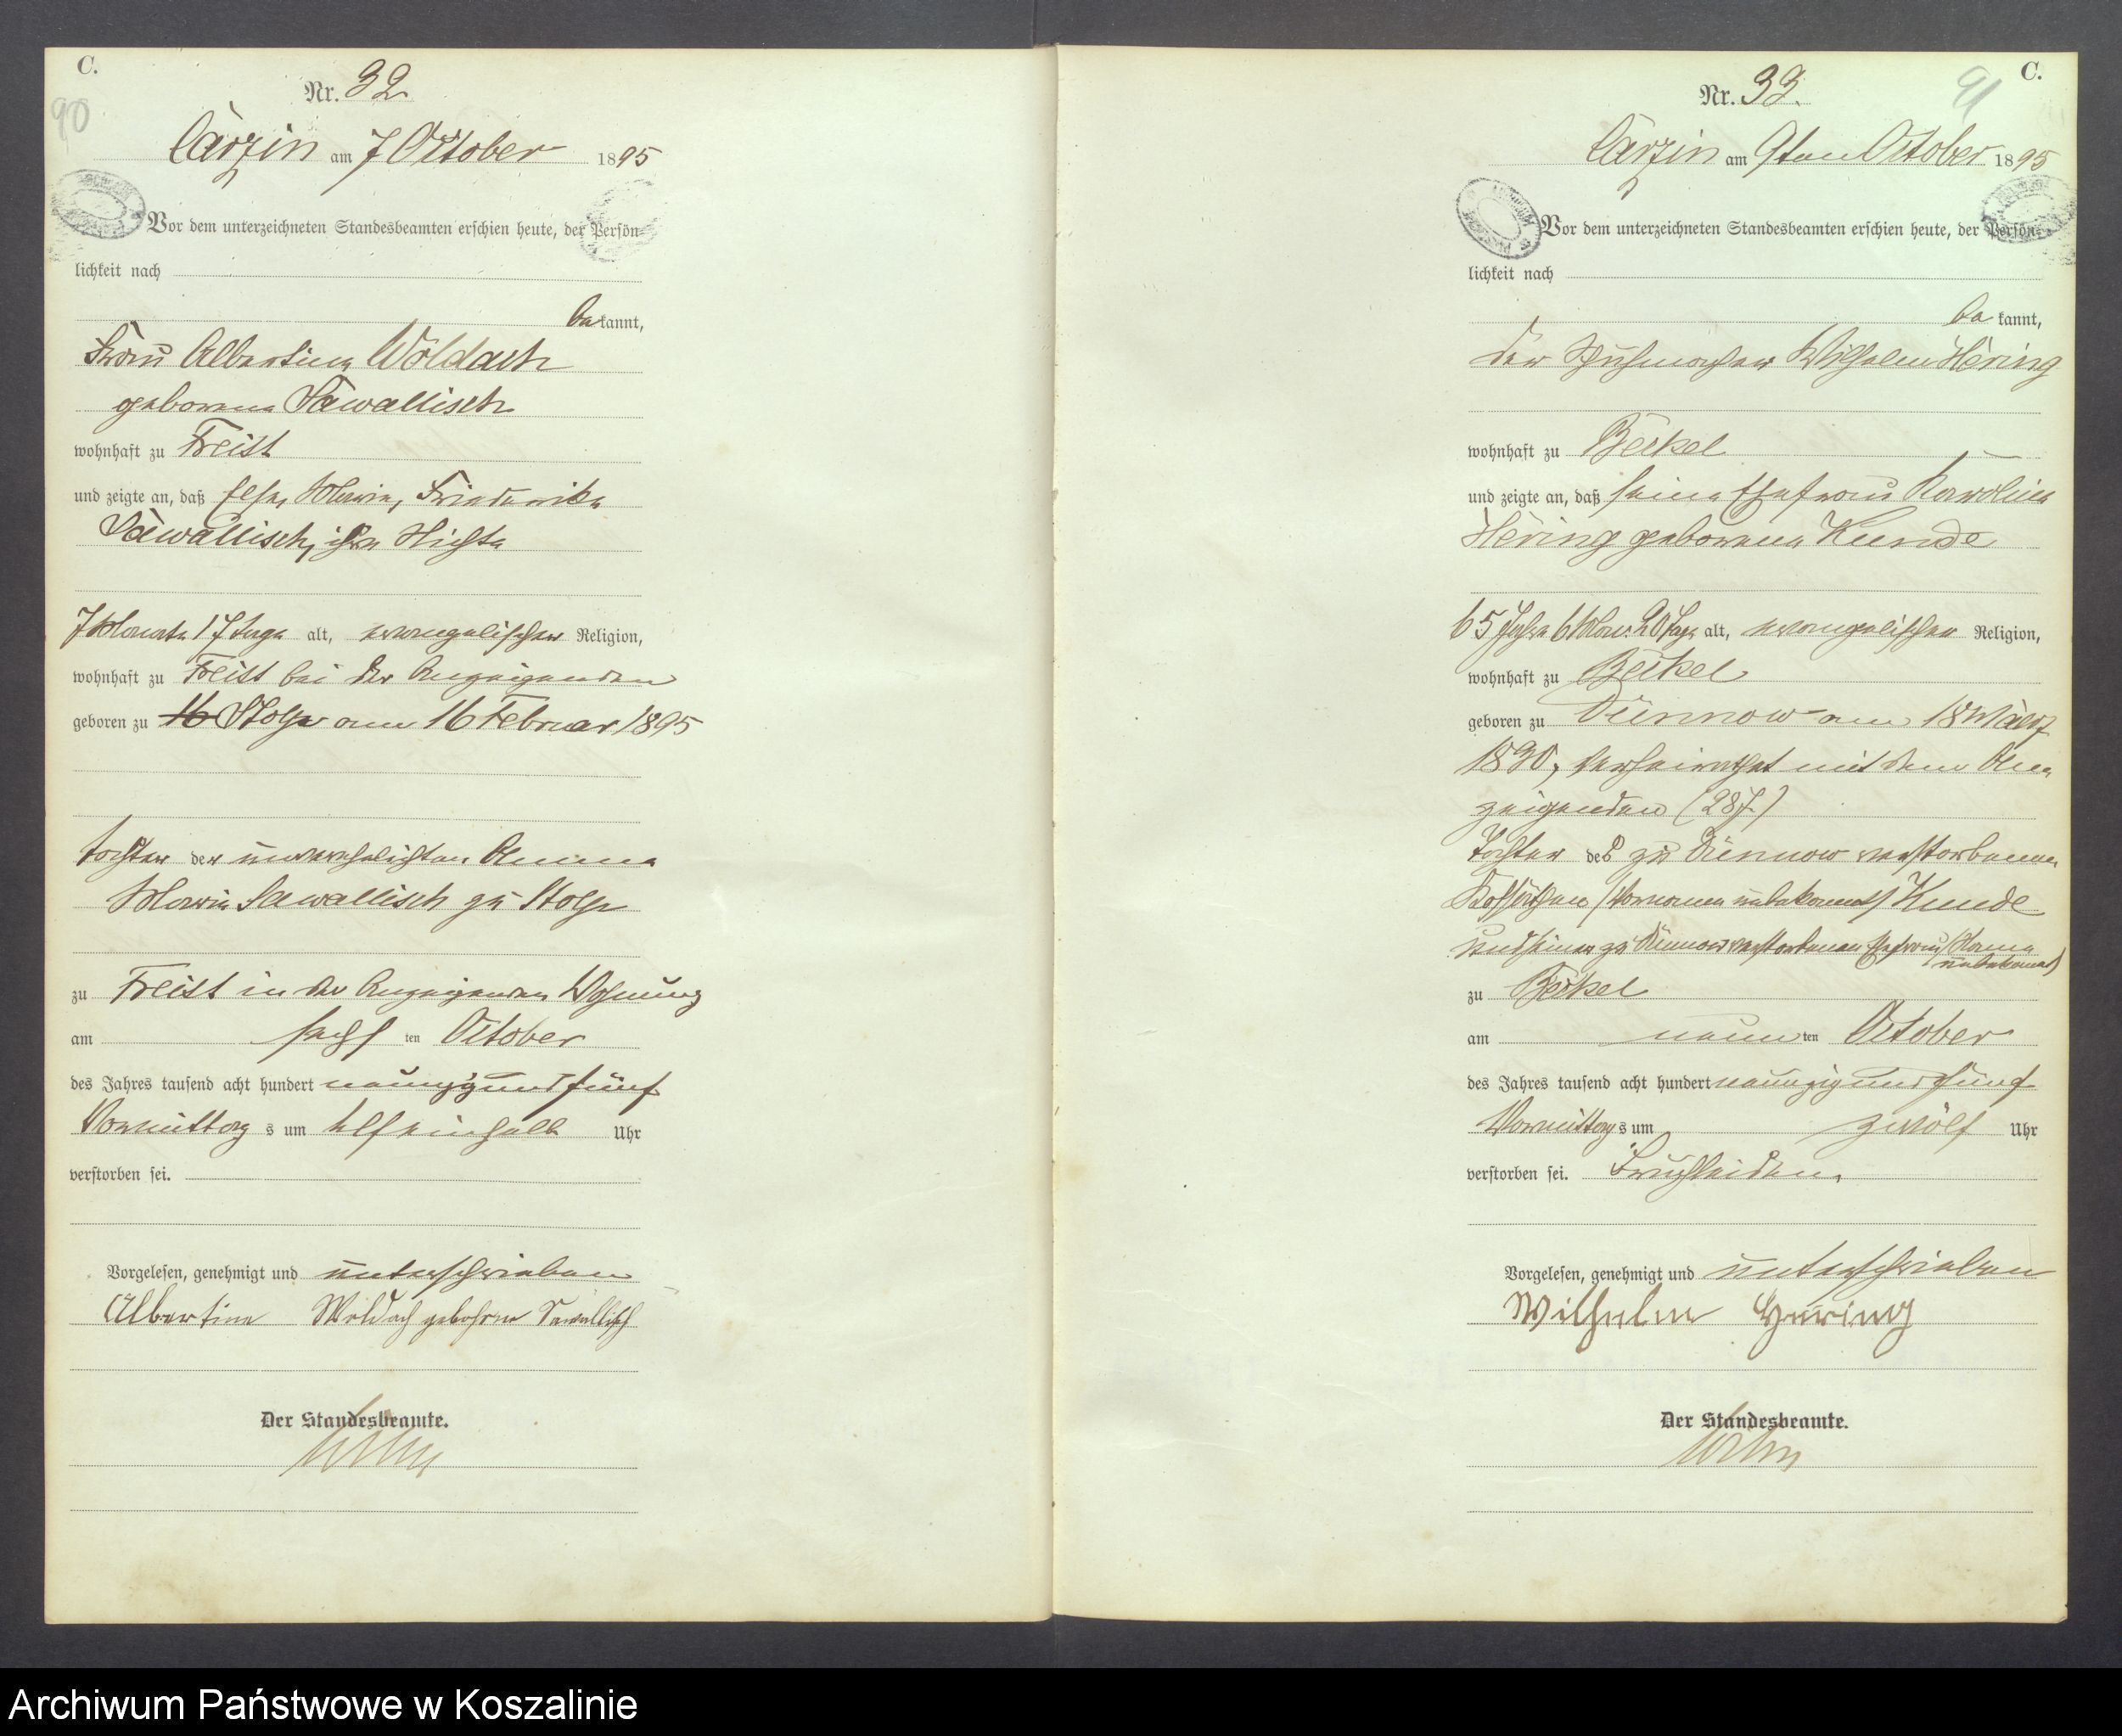 C.
90
Nr. 32
Carzin am 7 October 1895
Vor dem unterzeichneten Standesbeamten erschien heute, der Persön-
lichkeit nach
bekannt,
Frau Albertine Woldach
geborene Sawallisch
wohnhaft zu Freist
und zeigte an, daß Else, Marie, Friederike
Sawallisch, ihre Nichte
7 Monate 17 Tage alt, evangelischer Religion,
wohnhaft zu Freist bei der Anzeigenden
geboren zu Stolp am 16 Februar 1895
Tochter der unverehelichten Anna
Marie Sawallisch zu Stolp
zu Freist in der Anzeigenden Wohnung
am sechs ten October
des Jahres tausend acht hundert neunzig und fünf
Vormittag s um elf einhalb Uhr
verstorben sei.
Vorgelesen, genehmigt und unterschrieben
Albertine Woldach gebohrne Sawallisch
Der Standesbeamte.
C.
91
Nr. 33.
Carzin am 9ten October 1895
Vor dem unterzeichneten Standesbeamten erschien heute, der Persön-
lichkeit nach
bekannt,
der Schuhmacher Wilhelm Hering
wohnhaft zu Beckel
und zeigte an, daß seine Ehefrau Karoline
Hering geborene Kunde
65 Jahre 6 Mon. 20 Tage alt, evangelischer Religion,
wohnhaft zu Beckel
geboren zu Dünnow am 18 März
1830, verheirathet mit dem An-
zeigenden (28 J.)
Tochter des zu Dünnow verstorbenen
Kossäthen (Vorname unbekannt) Kunde
und seiner zu Dünnow verstorbenen Ehefrau (Name
unbekannt)
zu Beckel
am neun ten October
des Jahres tausend acht hundert neunzig und fünf
Vormittag s um zwölf Uhr
verstorben sei.
Vorgelesen, genehmigt und unterschrieben
Wilhelm Hering
Der Standesbeamte.
Archiwum Państwowe w Koszalinie